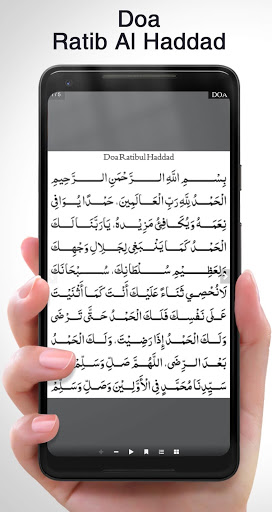 Doa
Ratib Al Haddad
DOA
Doa Ratibul Haddad
بِسْمِ اللَّهِ الرَّحْمَنِ الرَّحِيْمِ
الْحَمْدُ لِلَّهِ رَبِّ الْعَالَمِيْنَ، حَمْدًا يُوَافِي
نِعَمَهُ وَيُكَافِئُ مَزِيْدَهُ، يَا رَبَّنَا لَكَ
الْحَمْدُ كَمَا يَنْبَغِي لِجَلَالِ وَجْهِكَ
وَلِعَظِيْمِ سُلْطَانِكَ، سُبْحَانَكَ
لَا نُحْصِيْ ثَنَاءً عَلَيْكَ أَنْتَ كَمَا أَثْنَيْتَ
عَلَى نَفْسِكَ فَلَكَ الْحَمْدُ حَتَّى تَرْضَى
وَلَكَ الْحَمْدُ إِذَا رَضِيْتَ، وَلَكَ الْحَمْدُ
بَعْدَ الرِّضَى، اللَّهُمَّ صَلِّ وَسَلِّمْ
سَيِّدِنَا مُحَمَّدٍ فِي الْأَوَّلِيْنَ وَصَلِّ وَسَلِّمْ